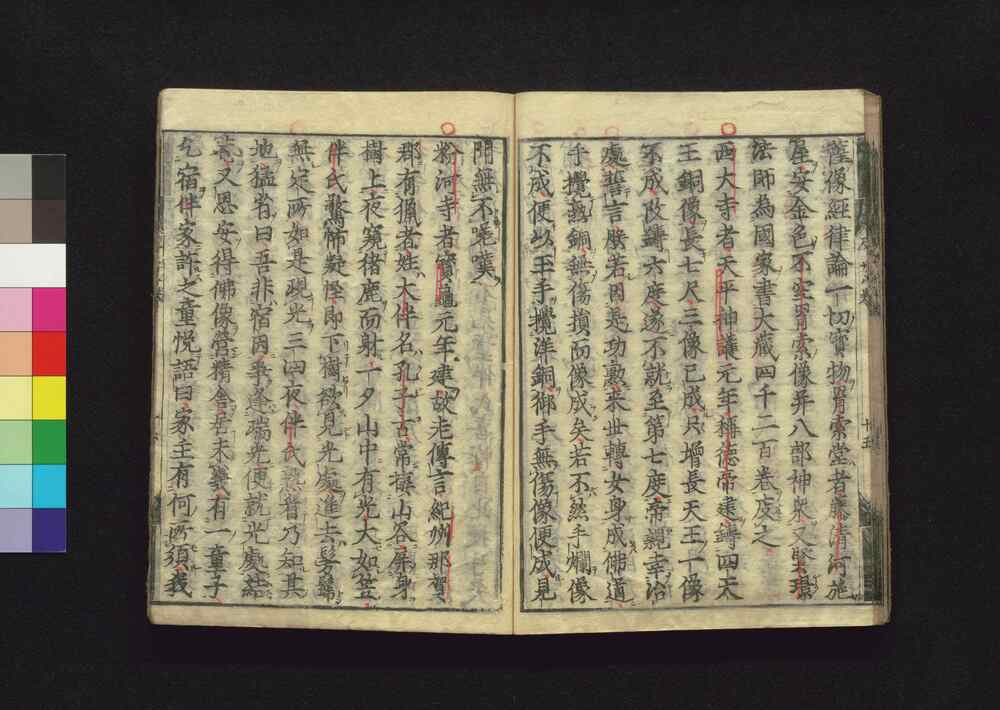 薩像經律論一切寶物羂索堂者藤清河施
屋安金色不空羂索像并八部神衆又堅璟
法師為國家書大藏四千二百卷庋之
西大寺者天平神護元年稱德帝建鑄四天
王銅像長七尺三像已成只增長天王一像
不成改鑄六度遂不就至第七度帝親幸冶
處誓言朕若因是功勲来世轉女身成佛道
手攪熱銅無傷損而像成矣若不然手爛像
不成便以玉手攪洋銅御手無傷像便成見
聞無不嗟嘆
粉河寺者寶龜元年建故老傳言紀州那賀
郡有獵者姓大伴名孔子古常據山谷屏身
樹上夜窺猪鹿而射一夕山中有光大如笠
伴氏驚怖疑怪即下樹欲見光處進去髣髴
無定所如是現光三四夜伴氏熟普乃知其
地猛省曰吾非宿因爭逢瑞光便就光處結
菴又思安得佛像營精舍居未幾有一童子
乞宿伴家許之童悦語曰家主有何所須我
十五